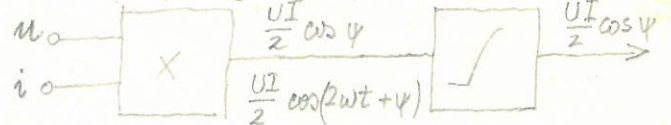 u
i
X
UI/2 cos ψ
UI/2 cos(2ωt + ψ)
UI/2 cos ψ